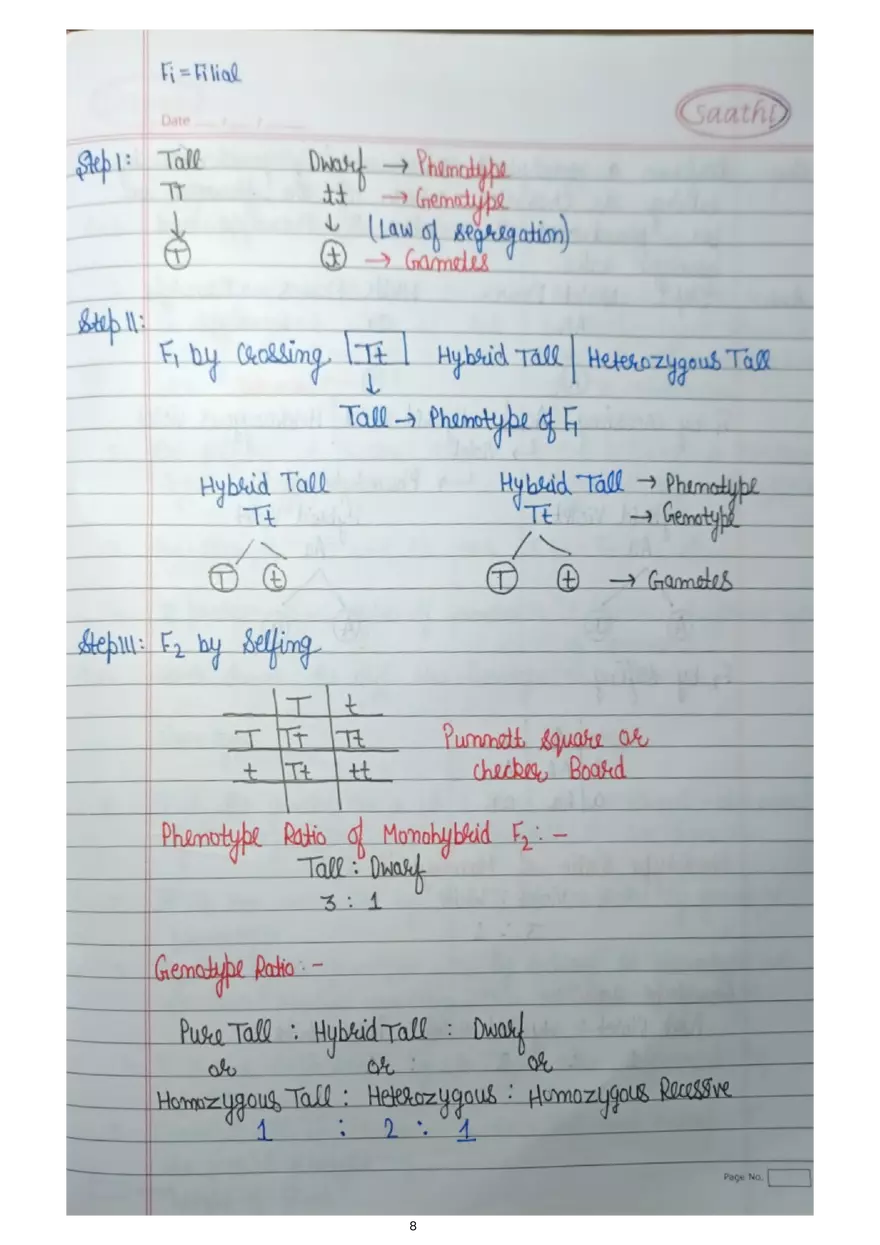 F1 = Filial
Date
Saathi
Step I: Tall Dwarf → Phenotype
TT tt → Genotype
↓ ↓ (Law of segregation)
T t → Gametes
Step II:
F1 by Crossing Tt Hybrid Tall | Heterozygous Tall
↓
Tall → Phenotype of F1
Hybrid Tall Hybrid Tall → Phenotype
Tt Tt → Genotype
T t T t → Gametes
Step III: F2 by Selfing
T t
T TT Tt Punnett square or
t Tt tt checker Board
Phenotype Ratio of Monohybrid F2 : -
Tall : Dwarf
3 : 1
Genotype Ratio : -
Pure Tall : Hybrid Tall : Dwarf
or or : or
Homozygous Tall : Heterozygous : Homozygous Recessive
1 : 2 : 1
Page No.
8